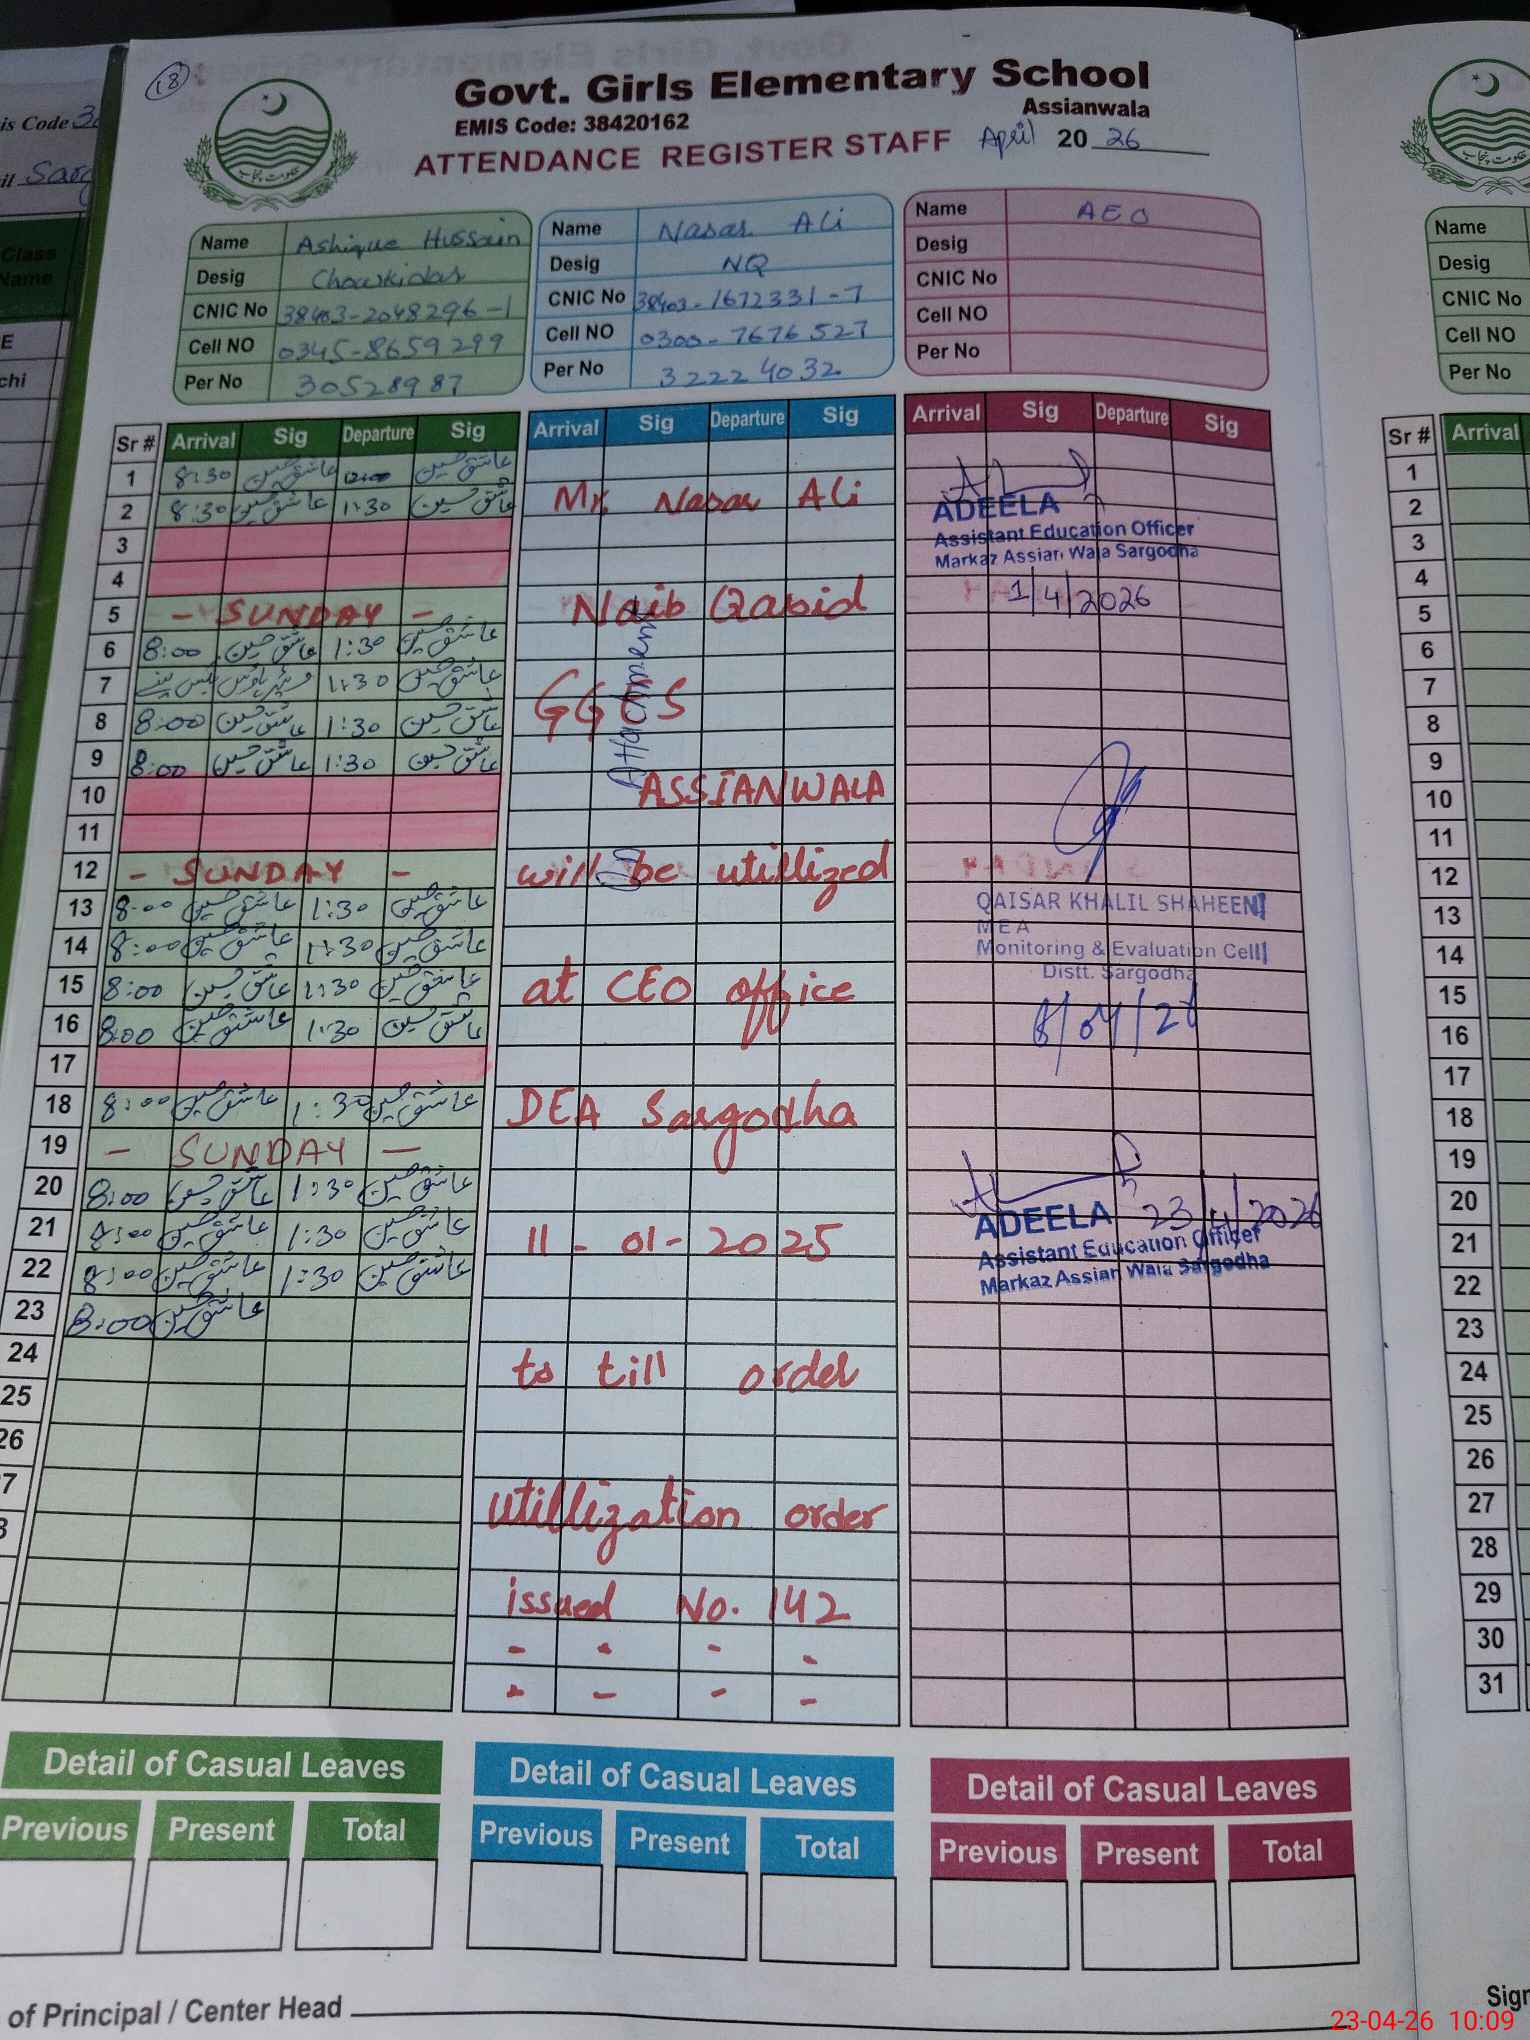 18
Govt. Girls Elementary School
Assianwala
EMIS Code: 38420162
ATTENDANCE REGISTER STAFF April 2026
Name Ashique Hussain
Desig Chowkidar
CNIC No 38403-2048296-1
Cell NO 0345-8659299
Per No 30528987
Name Nasar Ali
Desig NQ
CNIC No 38403-1672331-7
Cell NO 0300-7676527
Per No 32224032
Name AEO
Desig
CNIC No
Cell NO
Per No
Sr # Arrival Sig Departure Sig
1 8:30 عاشق حسین 12:00 عاشق حسین
2 8:30 عاشق حسین 1:30 عاشق حسین
3
4
5 - SUNDAY -
6 8:00 عاشق حسین 1:30 عاشق حسین
7 1:30 عاشق حسین
8 8:00 عاشق حسین 1:30 عاشق حسین
9 8:00 عاشق حسین 1:30 عاشق حسین
10
11
12 - SUNDAY -
13 8:00 عاشق حسین 1:30 عاشق حسین
14 8:00 عاشق حسین 1:30 عاشق حسین
15 8:00 عاشق حسین 1:30 عاشق حسین
16 8:00 عاشق حسین 1:30 عاشق حسین
17
18 8:00 عاشق حسین 1:30 عاشق حسین
19 - SUNDAY -
20 8:00 عاشق حسین 1:30 عاشق حسین
21 8:00 عاشق حسین 1:30 عاشق حسین
22 8:00 عاشق حسین 1:30 عاشق حسین
23 8:00 عاشق حسین
24
25
26
7
8
Arrival Sig Departure Sig
Mr. Nasar Ali
Naib Qasid
GGES
Attachment
ASSIANWALA
will be utillized
at CEO office
DEA Sargodha
11-01-2025
to till order
utillization order
issued No. 142
- - - -
- - - -
Arrival Sig Departure Sig
ADEELA
Assistant Education Officer
Markaz Assian Wala Sargodha
1/4/2026
QAISAR KHALIL SHAHEEN
MEA
Monitoring & Evaluation Cell
Distt. Sargodha
8/04/26
ADEELA 23/4/2026
Assistant Education Officer
Markaz Assian Wala Sargodha
Detail of Casual Leaves
Previous Present Total
Detail of Casual Leaves
Previous Present Total
Detail of Casual Leaves
Previous Present Total
of Principal / Center Head
is Code
Class
Name
Name
Desig
CNIC No
Cell NO
Per No
Sr # Arrival
1
2
3
4
5
6
7
8
9
10
11
12
13
14
15
16
17
18
19
20
21
22
23
24
25
26
27
28
29
30
31
23-04-26 10:09